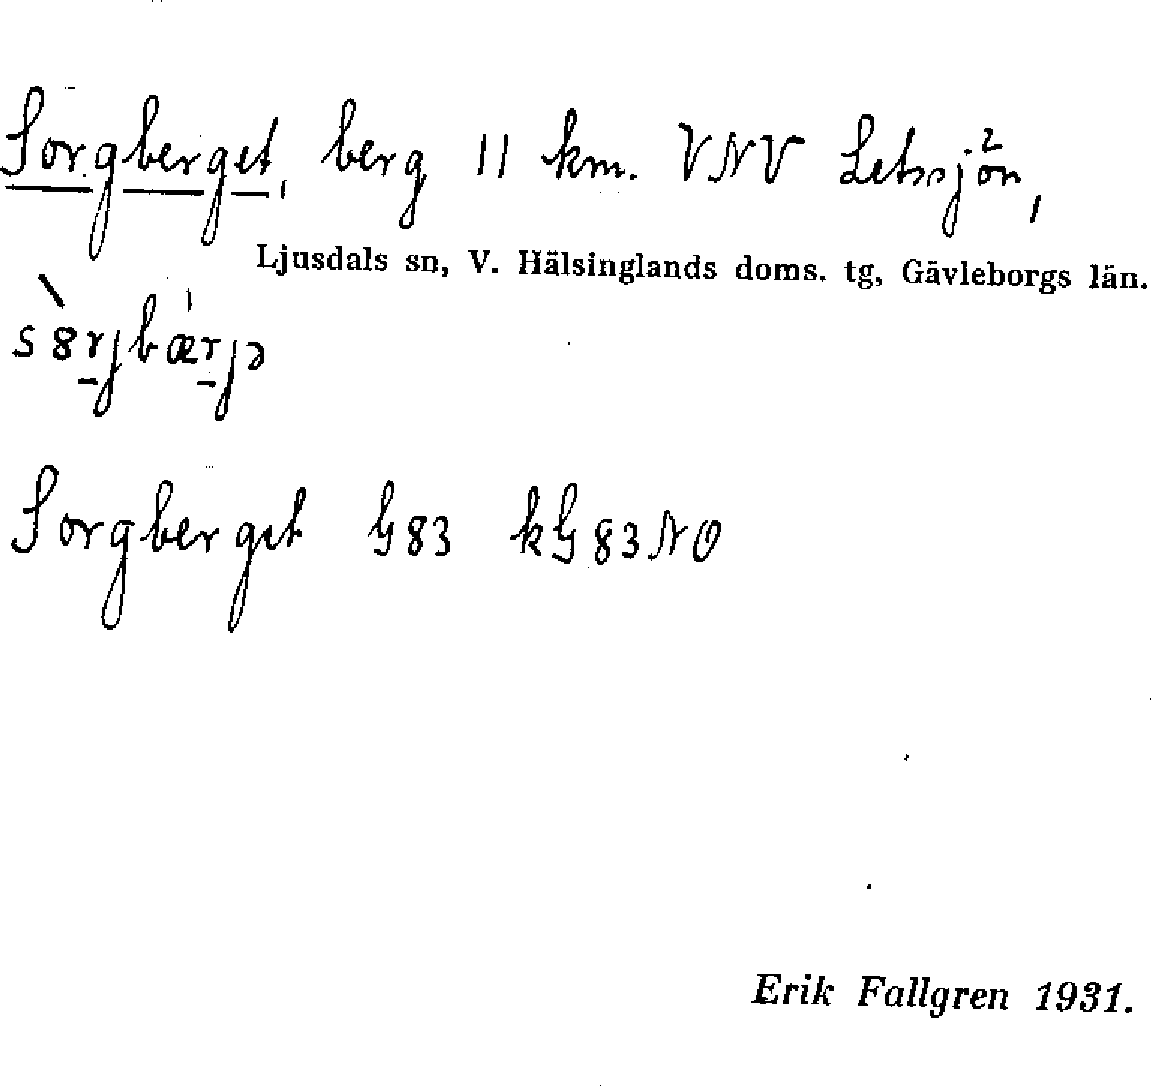 Sorgberget, berg 11 km. VNV Letssjön,
Ljusdals sn, V. Hälsinglands doms. tg, Gävleborgs län.
Sorgberget G83 kG83NO
Erik Fallgren 1931.